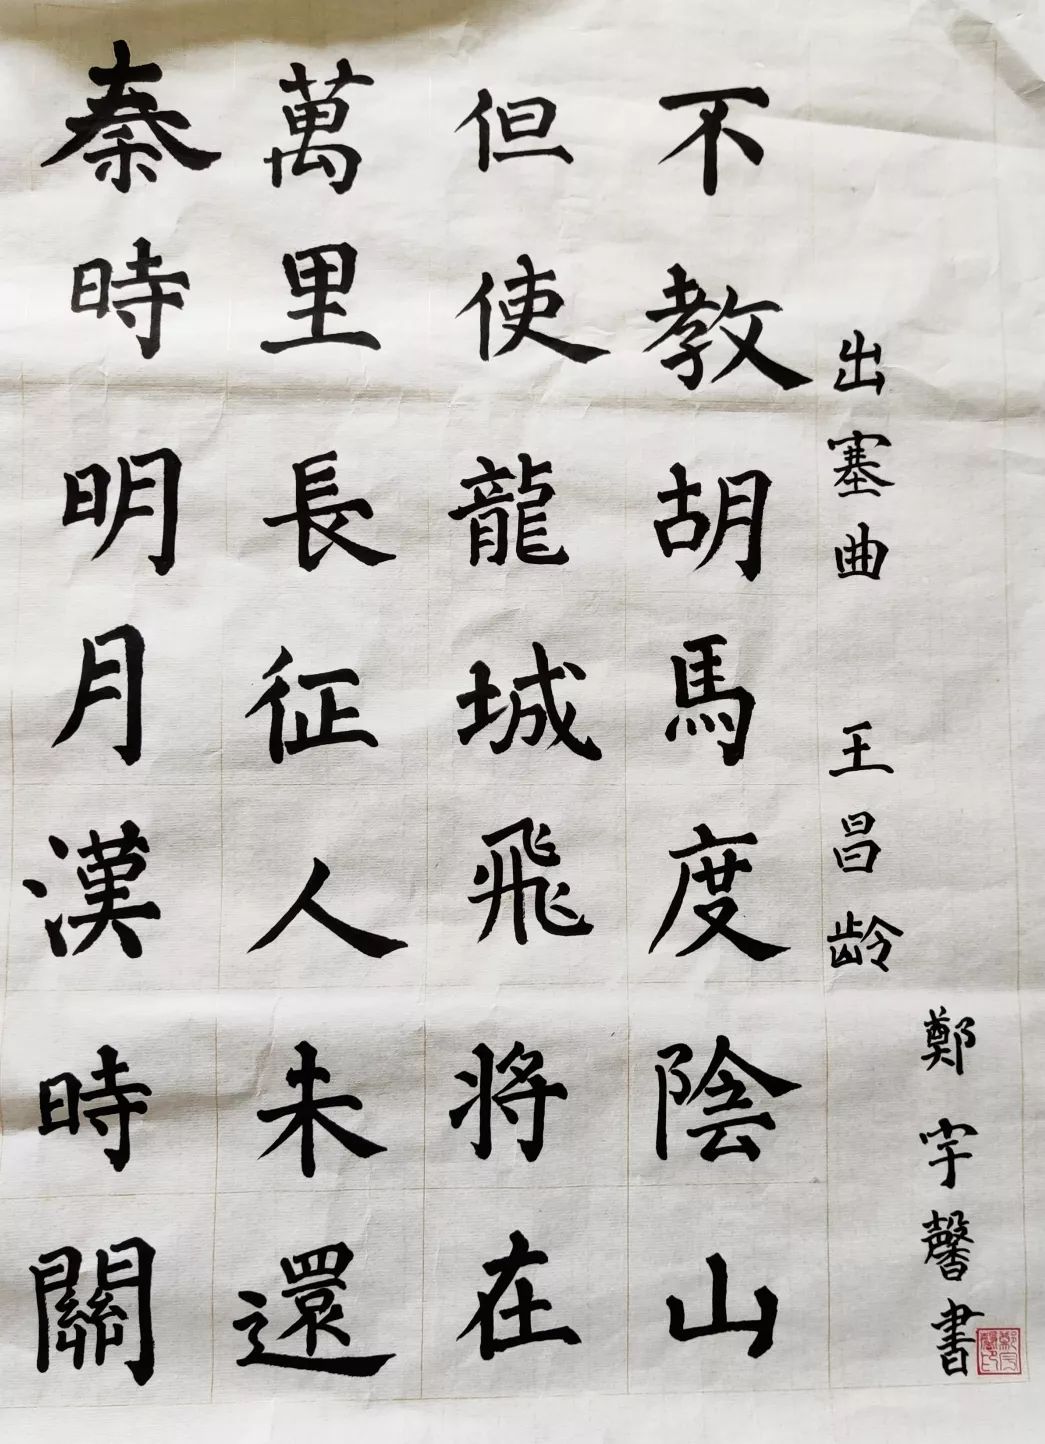 秦時明月漢時關
萬里長征人未還
但使龍城飛將在
不教胡馬度陰山
出塞曲 王昌龄
鄭宇馨書